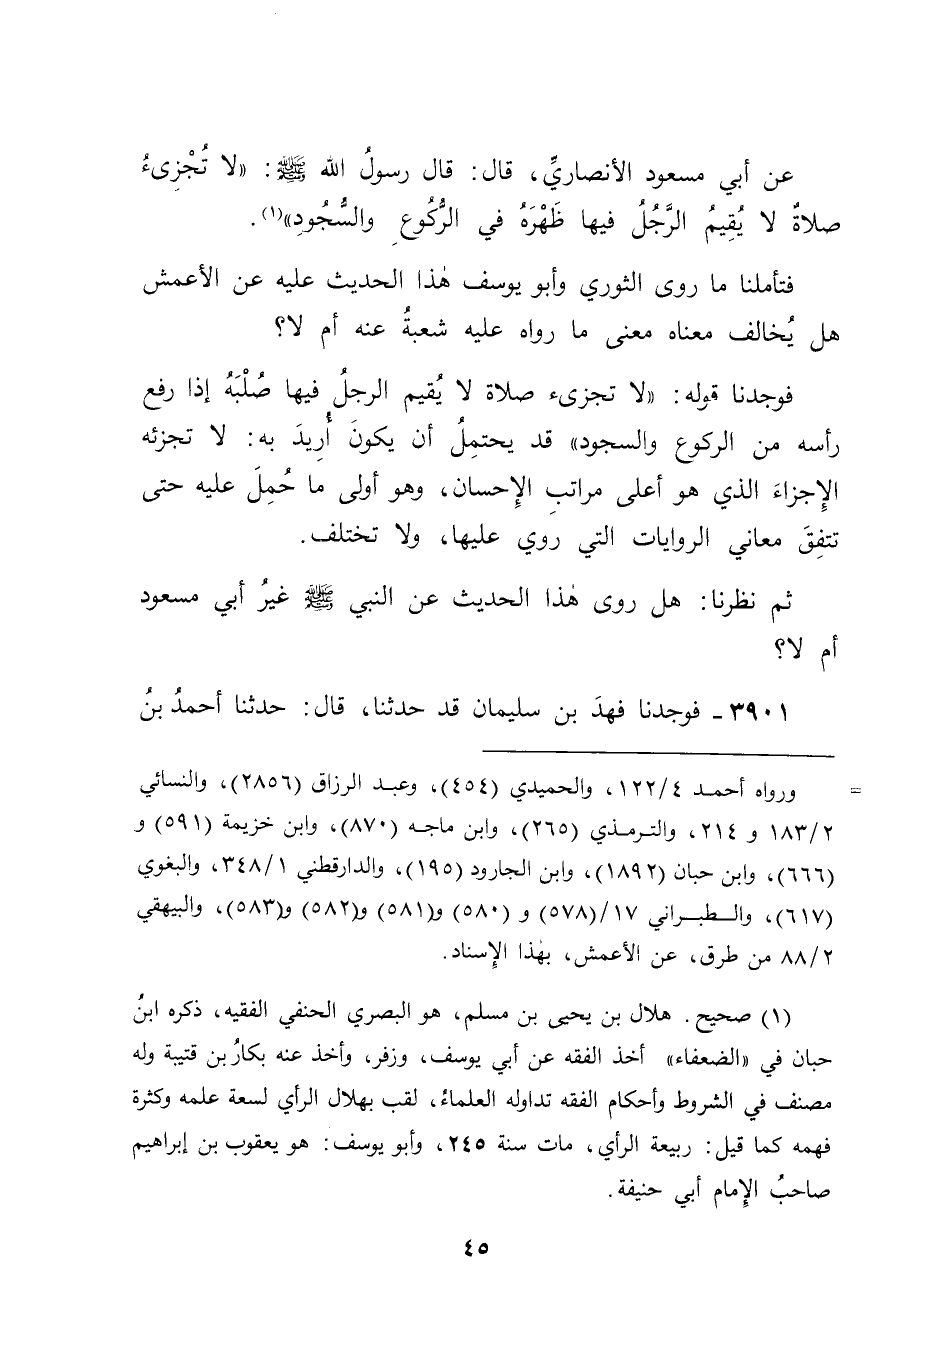 عن أبي مسعود الأنصاريِّ، قال: قال رسولُ الله ﷺ: «لا تُجْزِىءُ
صلاةٌ لا يُقِيمُ الرَّجُلُ فيها ظَهْرَهُ في الرُّكُوعِ والسُّجُودِ»(١).
فتأملنا ما روى الثوري وأبو يوسف هٰذا الحديث عليه عن الأعمش
هل يُخالف معناه معنى ما رواه عليه شعبةُ عنه أم لا؟
فوجدنا قوله: «لا تجزىء صلاة لا يُقيم الرجلُ فيها صُلْبَهُ إذا رفع
رأسه من الركوع والسجود» قد يحتمِلُ أن يكونَ أُرِيدَ به: لا تجزئه
الإِجزاءَ الذي هو أعلى مراتبِ الإِحسان، وهو أولى ما حُمِلَ عليه حتى
تتفِقَ معاني الروايات التي روي عليها، ولا تختلف.
ثم نظرنا: هل روى هٰذا الحديث عن النبي ﷺ غيرُ أبي مسعود
أم لا؟
٣٩٠١ - فوجدنا فهدَ بن سليمان قد حدثنا، قال: حدثنا أحمدُ بنُ
= ورواه أحمد ١٢٢/٤، والحميدي (٤٥٤)، وعبد الرزاق (٢٨٥٦)، والنسائي
١٨٣/٢ و ٢١٤، والترمذي (٢٦٥)، وابن ماجه (٨٧٠)، وابن خزيمة (٥٩١) و
(٦٦٦)، وابن حبان (١٨٩٢)، وابن الجارود (١٩٥)، والدارقطني ٣٤٨/١، والبغوي
(٦١٧)، والطبراني ١٧/(٥٧٨) و (٥٨٠) و(٥٨١) و(٥٨٢) و(٥٨٣)، والبيهقي
٨٨/٢ من طرق، عن الأعمش، بهٰذا الإِسناد.
(١) صحيح. هلال بن يحيى بن مسلم، هو البصري الحنفي الفقيه، ذكره ابنُ
حبان في «الضعفاء» أخذ الفقه عن أبي يوسف، وزفر، وأخذ عنه بكارُ بن قتيبة وله
مصنف في الشروط وأحكام الفقه تداوله العلماءُ، لقب بهلال الرأي لسعة علمه وكثرة
فهمه كما قيل: ربيعة الرأي، مات سنة ٢٤٥، وأبو يوسف: هو يعقوب بن إبراهيم
صاحبُ الإِمام أبي حنيفة.
٤٥